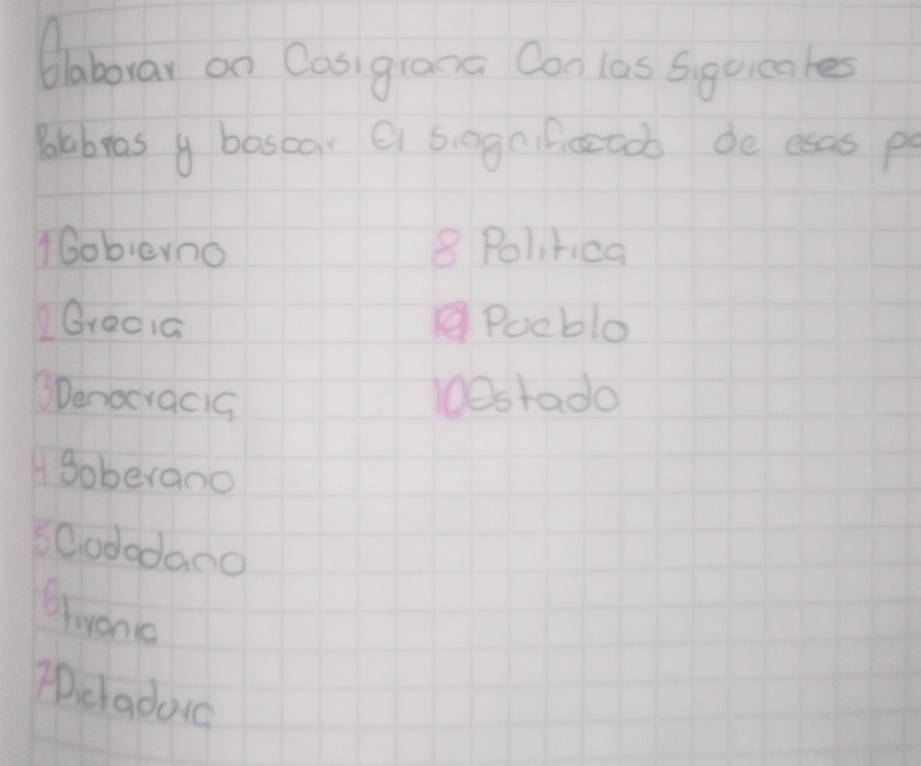 Elaborar on Casigrama Con las Siguientes
Palabras y boscar el significado de esas
1 Gobierno
2 Grecia
3 Democracia
4 Soberano
5 Ciodadano
6 tirania
7 Dictadura
8 Politica
9 Pueblo
10 Estado